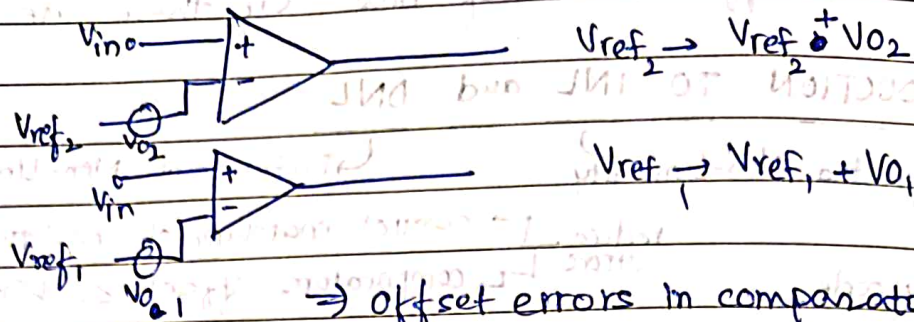 Vin + Vref2 → Vref2 + VO2
-
Vref2 VO2
Vin + Vref1 → Vref1 + VO1
-
Vref1 VO1
⇒ offset errors in comparat